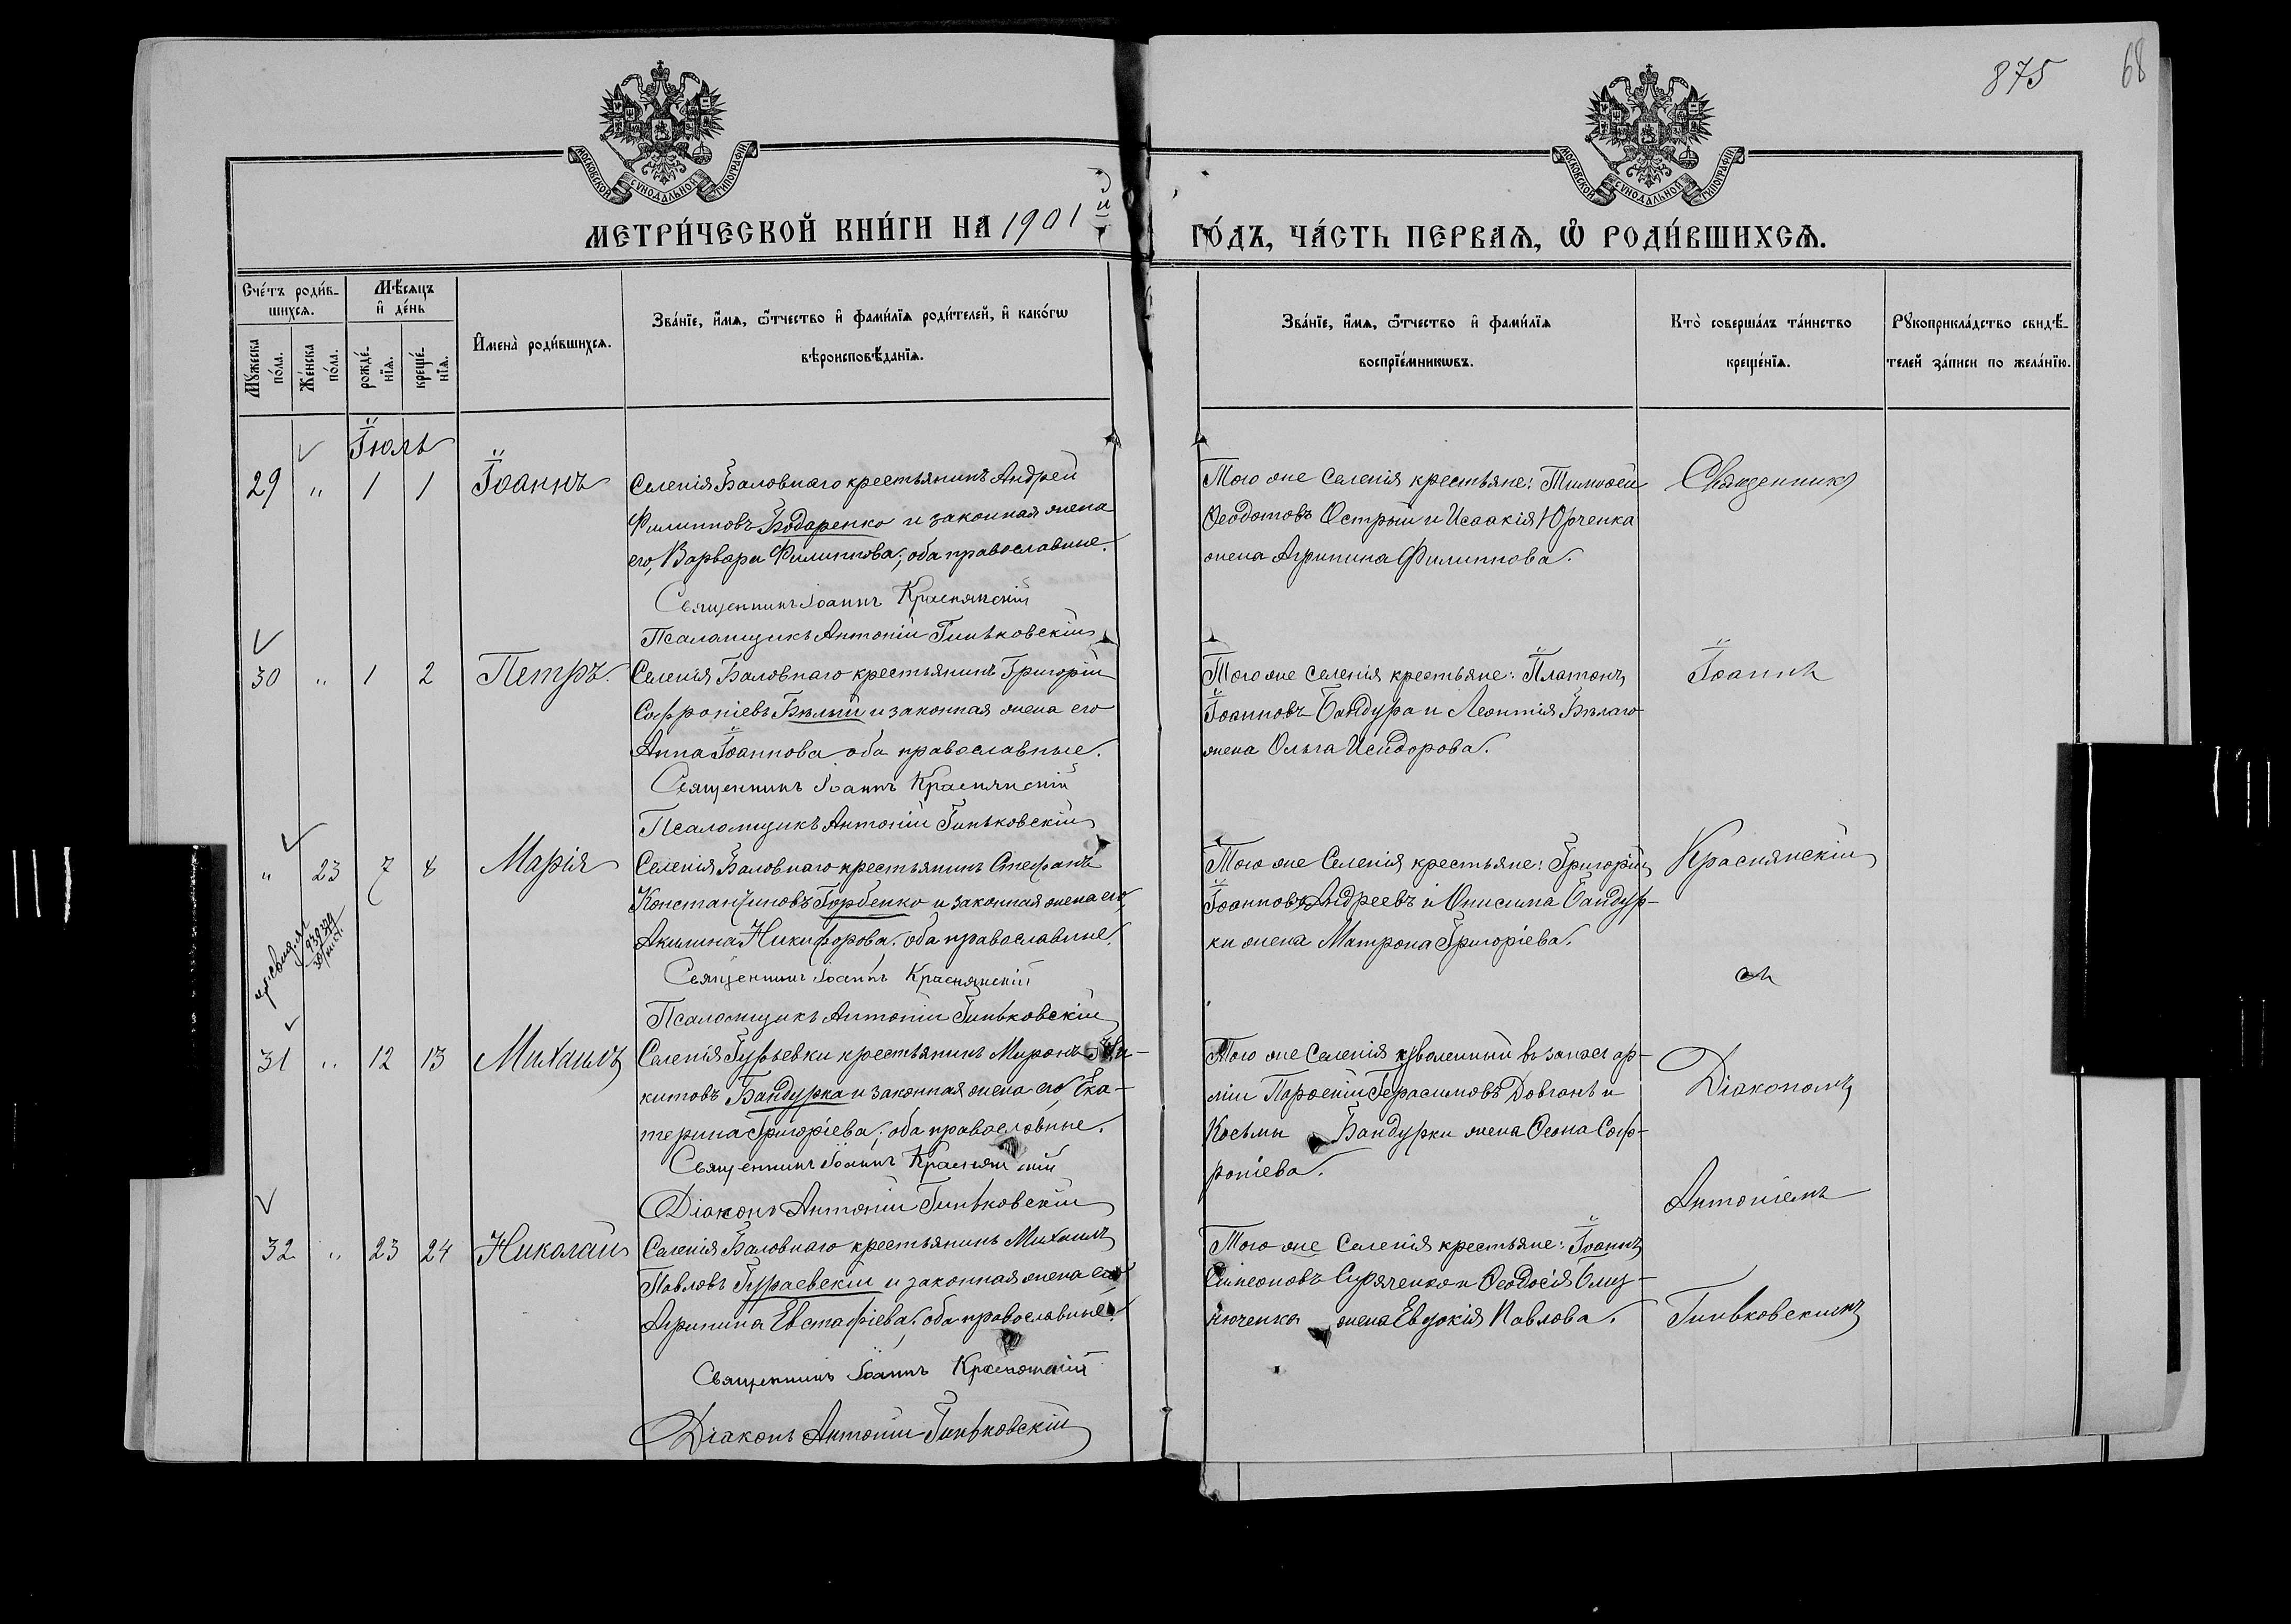 875
68
МОСКОВСКОЙ СѴНОДАЛЬНОЙ ТИПОГРАФІИ
МОСКОВСКОЙ СѴНОДАЛЬНОЙ ТИПОГРАФІИ
МЕТРИ́ЧЕСКОЙ КНИ́ГИ НА 1901й
ГО́ДЪ, ЧА́СТЬ ПЕРВАѦ, Ѽ РОДИ́ВШИХСѦ.
Сче́тъ роди́в-
шихсѧ.
Мѣ́сѧцъ
и҆ де́нь
Мꙋ́жеска по́ла.
Же́нска по́ла.
рожде́-
нїѧ.
креще́-
нїѧ.
И҆мена̀ роди́вшихсѧ.
Зва́нїе, и҆́мѧ, ѻ҆́тчество и҆ фами́лїѧ роди́телей, и҆ како́гѡ
вѣроисповѣ́данїѧ.
Зва́нїе, и҆́мѧ, ѻ҆́тчество и҆ фами́лїѧ
воспрїе́мникѡвъ.
Кто̀ соверша́лъ та́инство
креще́нїѧ.
Рꙋкоприкла́дство свидѣ́-
телей за́писи по жела́нїю.
Іюль
29 " 1 1 Іоаннъ
Селенія Баловнаго крестьянинъ Андрей
Филипповъ Бодаренко и законная жена
его, Варвара Филиппова; оба православные.
Священникъ Іоаннъ Краснянскій
Псаломщикъ Антоній Гиньковскій
Того же селенія крестьяне: Тимоѳей
Ѳеодотовъ Острый и Исаакія Юрченка
жена Агрипина Филиппова.
Священник
30 " 1 2 Петръ.
Селенія Баловнаго крестьянинъ Григорій
Софроніевъ Бѣлый и законная жена его
Анна Іоаннова оба православные.
Священникъ Іоаннъ Краснянскій
Псаломщикъ Антоній Гиньковскій
Того же селенія крестьяне: Платонъ
Іоанновъ Бандура и Леонтія Бѣлаго
жена Ольга Исидорова.
Іоаннъ
" 23 7 8 Марія
Селенія Баловнаго крестьянинъ Стефанъ
Константиновъ Горбенко и законная жена его,
Акилина Никифорова; оба православные.
Священникъ Іоаннъ Краснянскій
Псаломщикъ Антоній Гиньковскій
Того же Селенія крестьяне: Григорій
Іоанновъ Андреевъ и Онисима Бандур-
ки жена Матрона Григоріева.
Краснянскій
съ
31 " 12 13 Михаилъ
Селенія Гурьевки крестьянинъ Миронъ Ни-
китовъ Бандурка и законная жена его, Ека-
терина Григоріева; оба православные.
Священникъ Іоаннъ Краснянскій
Діаконъ Антоній Гиньковскій
Того же Селенія уволенный въ запасъ ар-
міи Парѳеній Герасимовъ Довгань и
Косьмы Бандурки жена Ѳеона Соф-
роніева.
Діакономъ
Антоніемъ
32 " 23 24 Николай
Селенія Баловнаго крестьянинъ Михаилъ
Павловъ Гураевскій и законная жена его
Агрипина Евстафіева; оба православные.
Священникъ Іоаннъ Краснянскій
Діаконъ Антоній Гиньковскій
Того же Селенія крестьяне: Іоаннъ
Симеоновъ Сиряченко и Ѳеодосія Близ-
нюченка жена Евдокія Павлова.
Гиньковскимъ